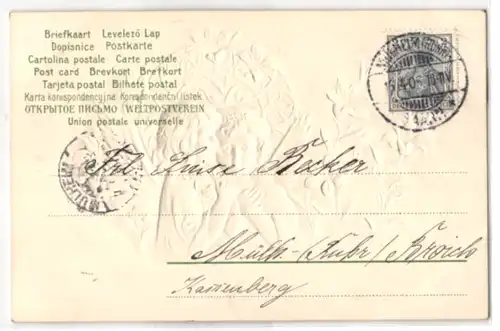 Briefkaart Levelező Lap
Dopisnice Postkarte
Cartolina postale Carte postale
Post card Brevkort Brefkort
Tarjeta postal Bilhete postal
Karta korespondencyjna Korespondenční lístek
ОТКРЫТОЕ ПИСЬМО WELTPOSTVEREIN
Union postale universelle
Frl. Luise Becker
Mülh. (Ruhr) Broich
Kassenberg